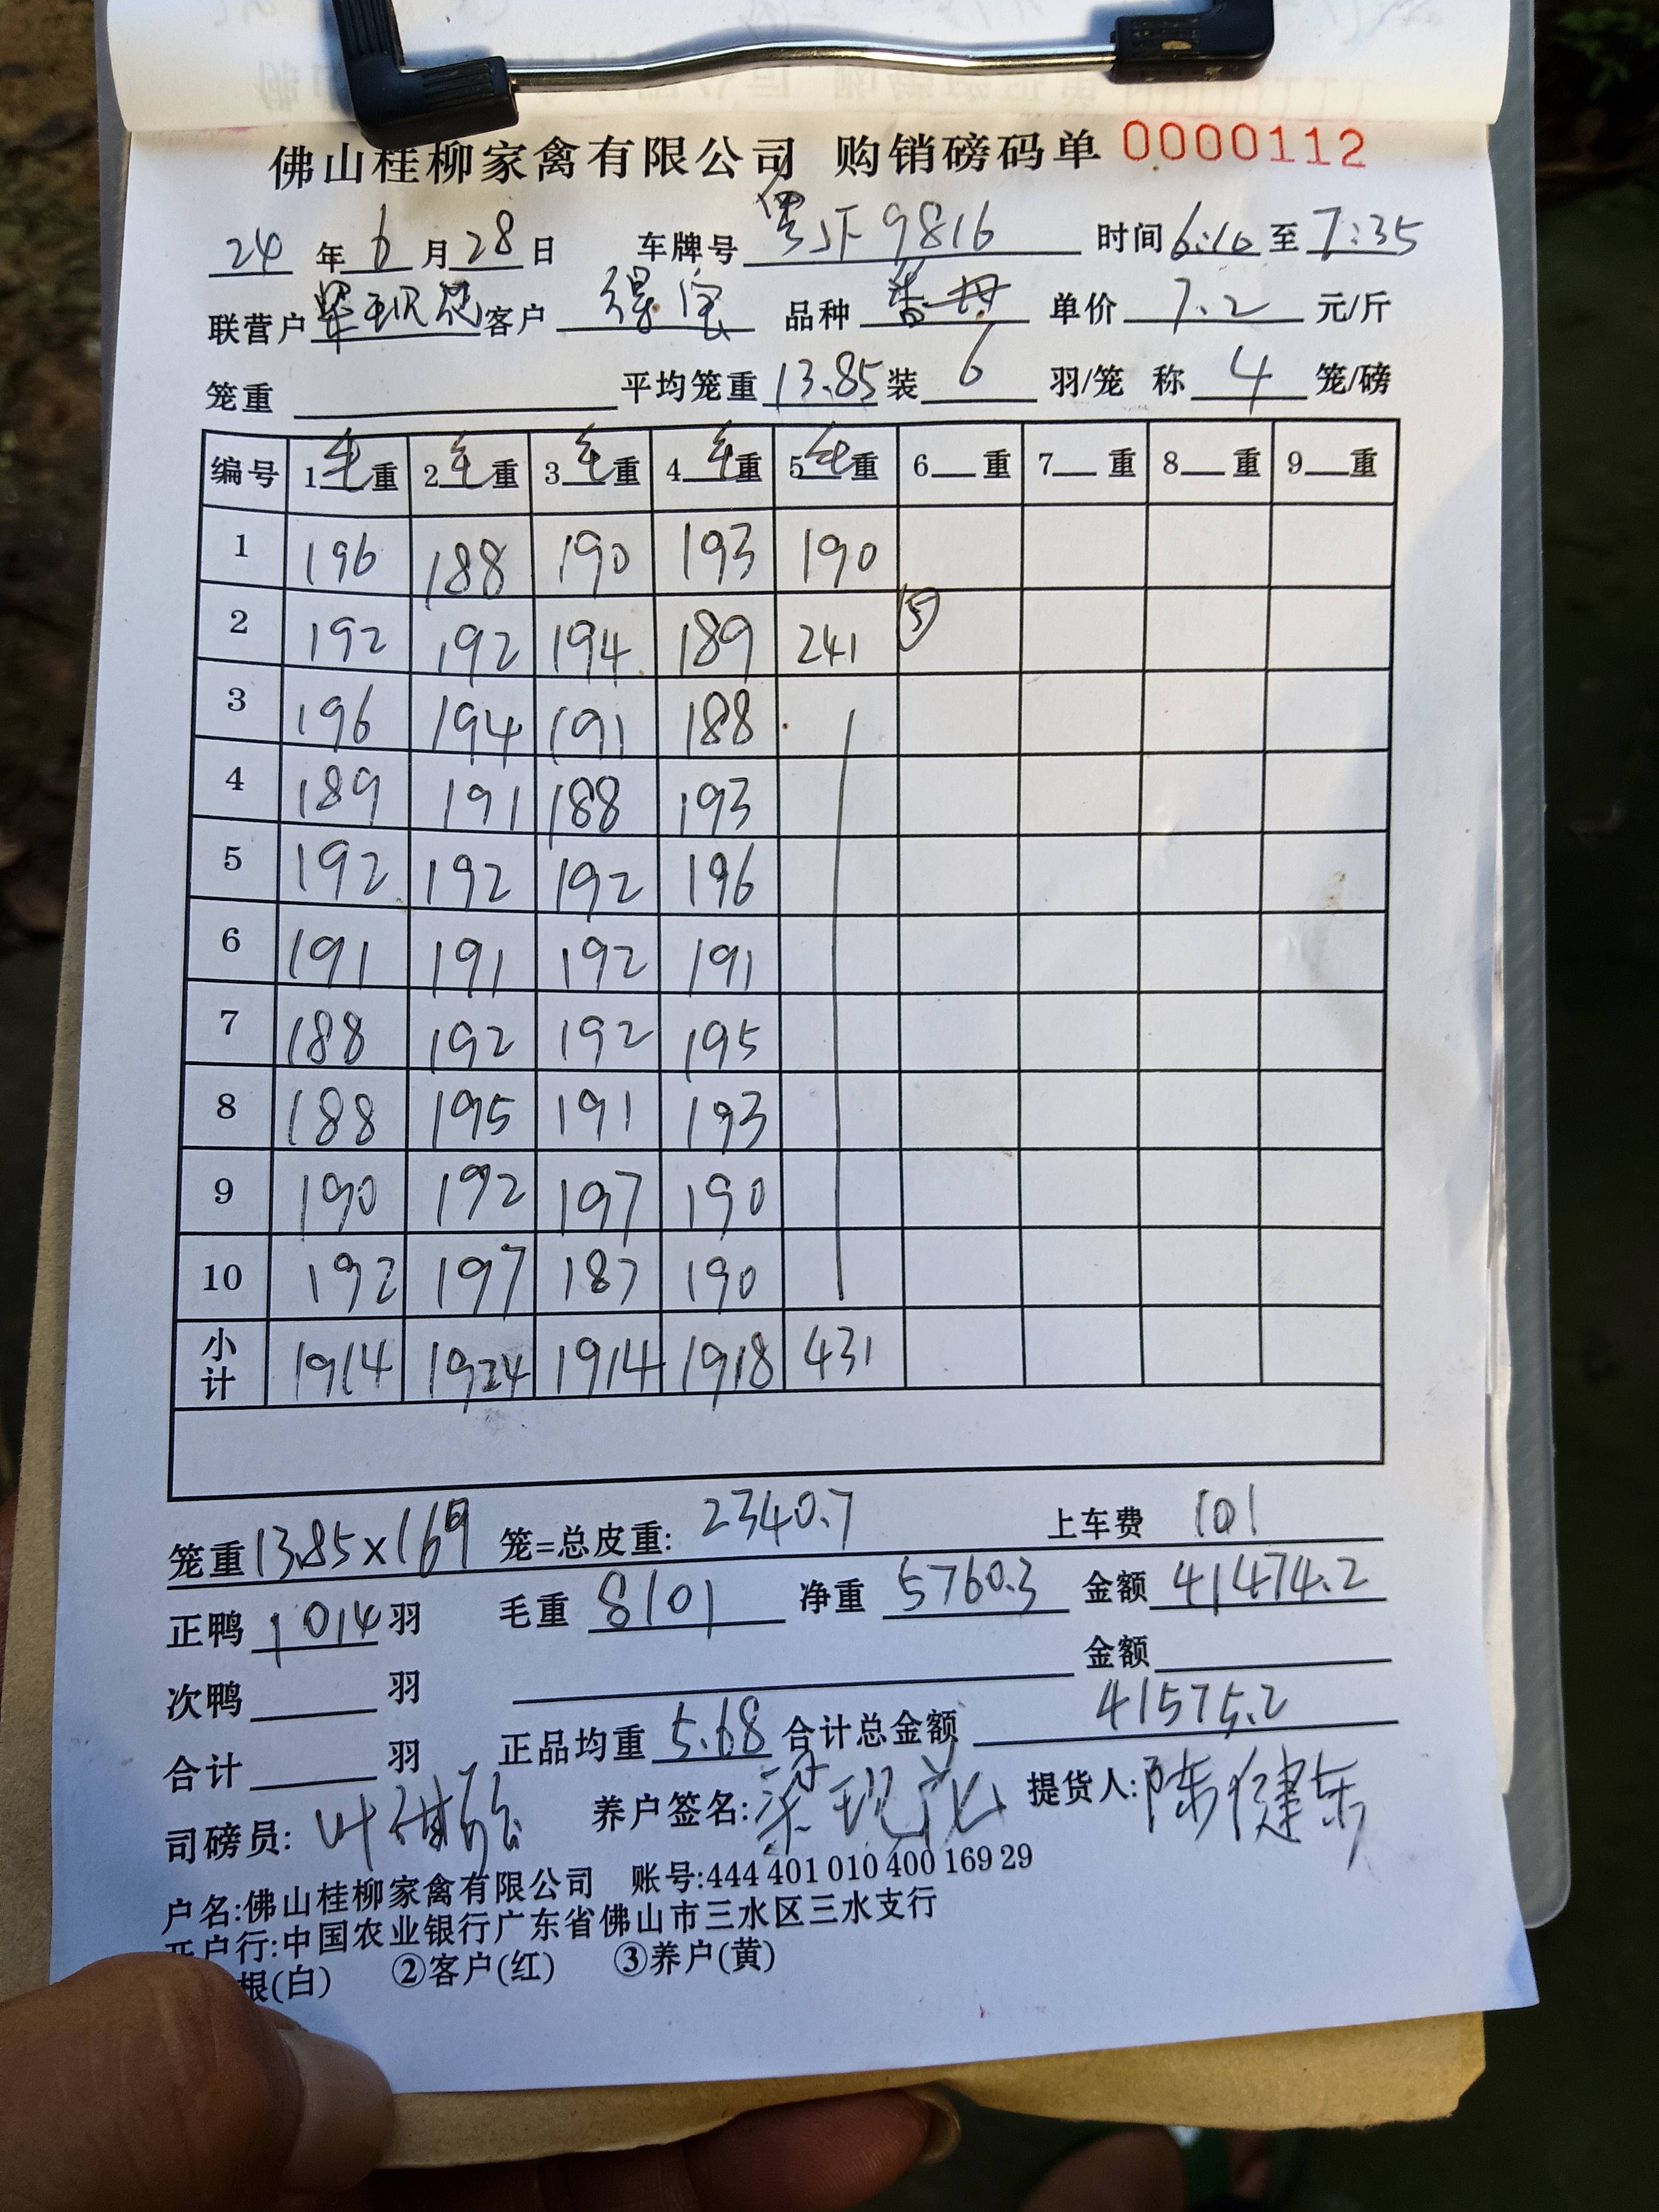 佛山桂柳家禽有限公司 购销磅码单 0000112
24 年 6 月 28 日 车牌号 粤JF9816 时间 6:10 至 7:35
联营户 客户 得宝 品种 单价 7.2 元/斤
笼重 平均笼重 13.85 装 6 羽/笼 称 4 笼/磅
编号 1毛重 2毛重 3毛重 4毛重 5毛重 6 重 7 重 8 重 9 重
1 196 188 190 193 190
2 192 192 194 189 241 ⑤
3 196 194 191 188
4 189 191 188 193
5 192 192 192 196
6 191 191 192 191
7 188 192 192 195
8 188 195 191 193
9 190 192 197 190
10 192 197 187 190
小计 1914 1924 1914 1918 431
笼重 13.85×169 笼=总皮重: 2340.7 上车费 101
正鸭 1014 羽 毛重 8101 净重 5760.3 金额 41474.2
次鸭 羽 金额
合计 羽 正品均重 5.68 合计总金额 41575.2
司磅员: 养户签名: 提货人: 陈健东
户名:佛山桂柳家禽有限公司 账号:444 401 010 400 169 29
开户行:中国农业银行广东省佛山市三水区三水支行
根(白) ②客户(红) ③养户(黄)